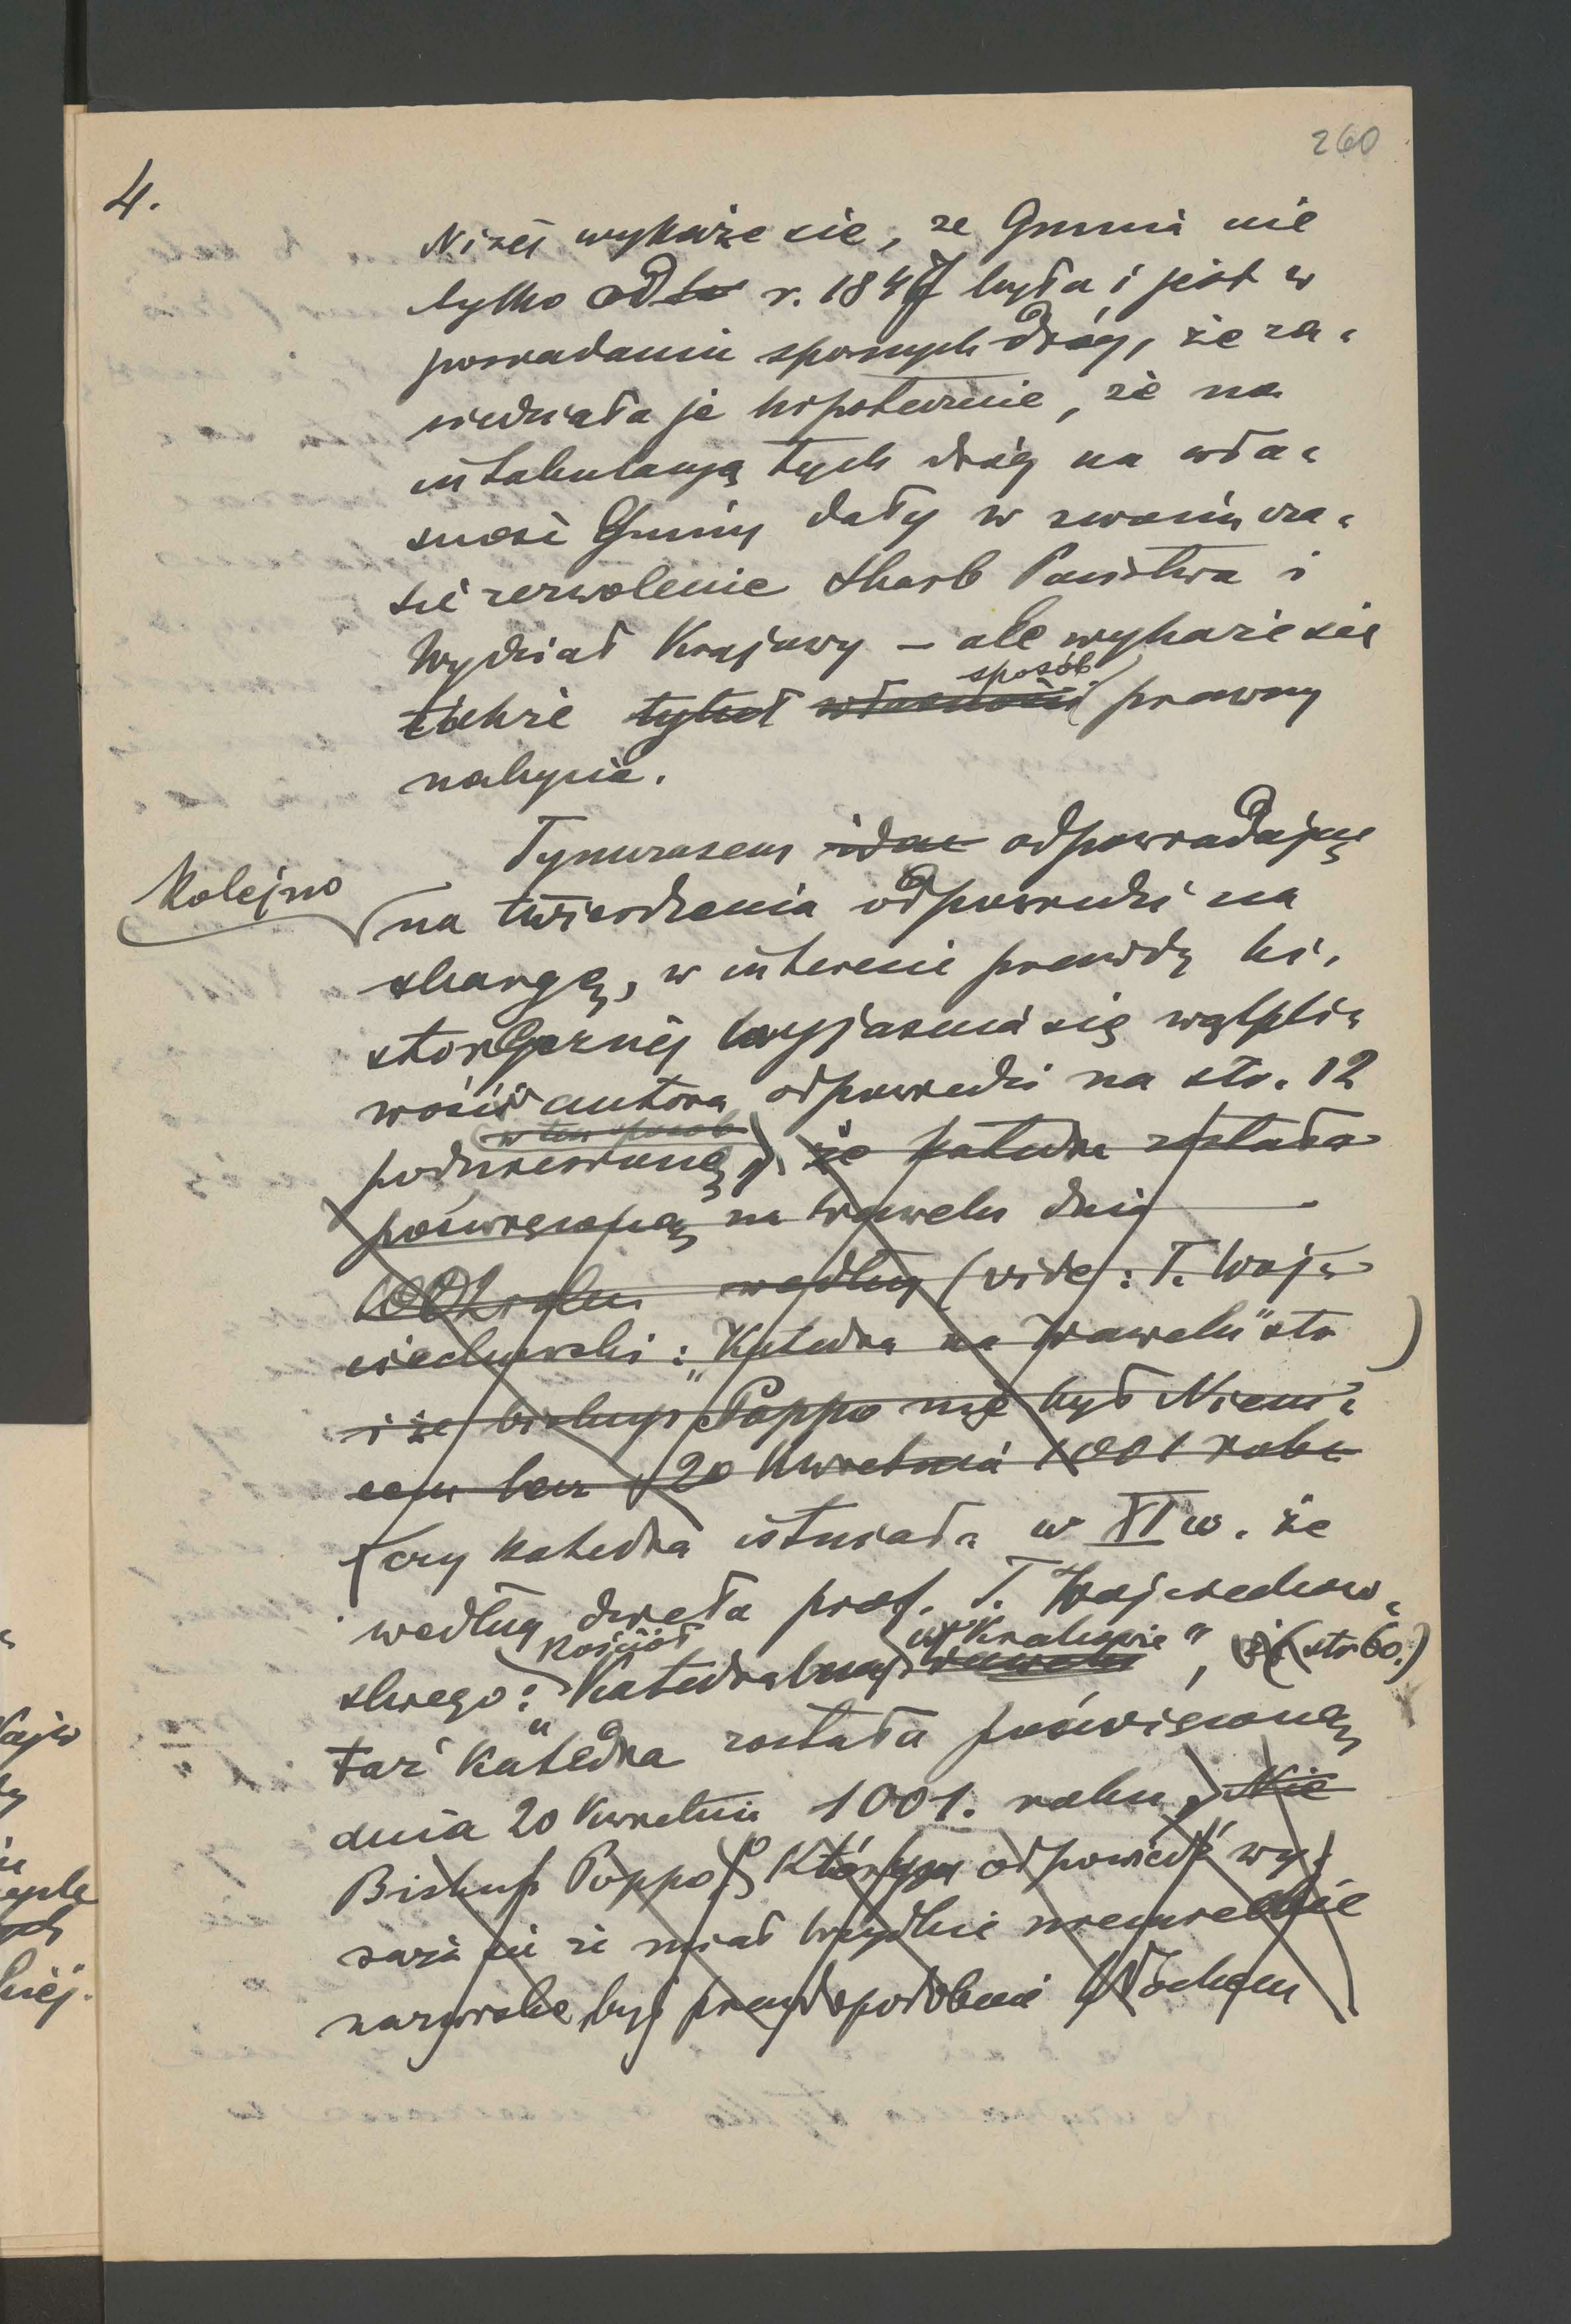 260
4.
Niżej wykaże się, że Gmina nie
tylko od r. 184 była i jest w
posiadaniu spornych dróg, że za=
siedziała je hipotecznie, że na
intabulacyą tych dróg na wła=
sność Gminy dały w swoim cza=
sie zezwolenie Skarb Państwa i
Wydział Krajowy – ale wykaże się
sposób
także tytuł własności prawny
nabycia.
Tymczasem idąc odpowiadając
Kolejno
na twierdzenia odpowiedzi na
skargę, w interesie prawdy hi=
storycznej wyjaśnia się wątpli=
wość autora odpowiedzi na str. 12
w ten sposób
podniesioną, że katedra została
poświęconą na Wawelu dnia
według (vide: T. Woj=
ciechowski: „Katedra na Wawelu" str )
i że biskup Poppo nie był Niem=
cem lecz 20 kwietnia 1001 roku
(czy katedra istniała w XI w. że
według dzieła prof. T. Wojciechow=
Kościół w Krakowie"
skiego: „Katedralny Wawelu, (str 60.)
taż katedra została poświęconą
dnia 20 kwietnia 1001. roku, Nie
Biskup Poppo, o którym odpowiedź wy=
raża się że miał brzydkie niemieckie
nazwisko, był prawdopodobnie Włochem